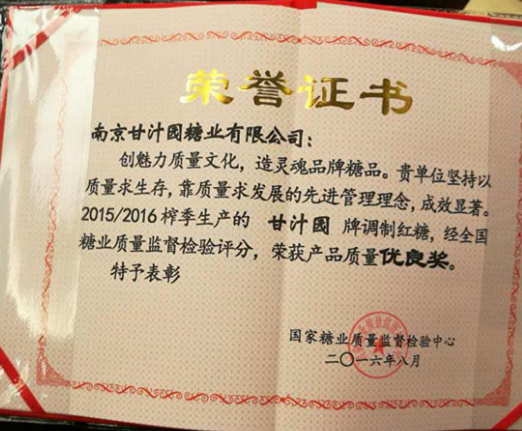 荣誉证书
南京甘汁园糖业有限公司：
创魅力质量文化，造灵魂品牌糖品。贵单位坚持以
质量求生存，靠质量求发展的先进管理理念，成效显著。
2015/2016榨季生产的 甘汁园 牌调制红糖，经全国
糖业质量监督检验评分，荣获产品质量优良奖。
特予表彰
国家糖业质量监督检验中心
二〇一六年八月